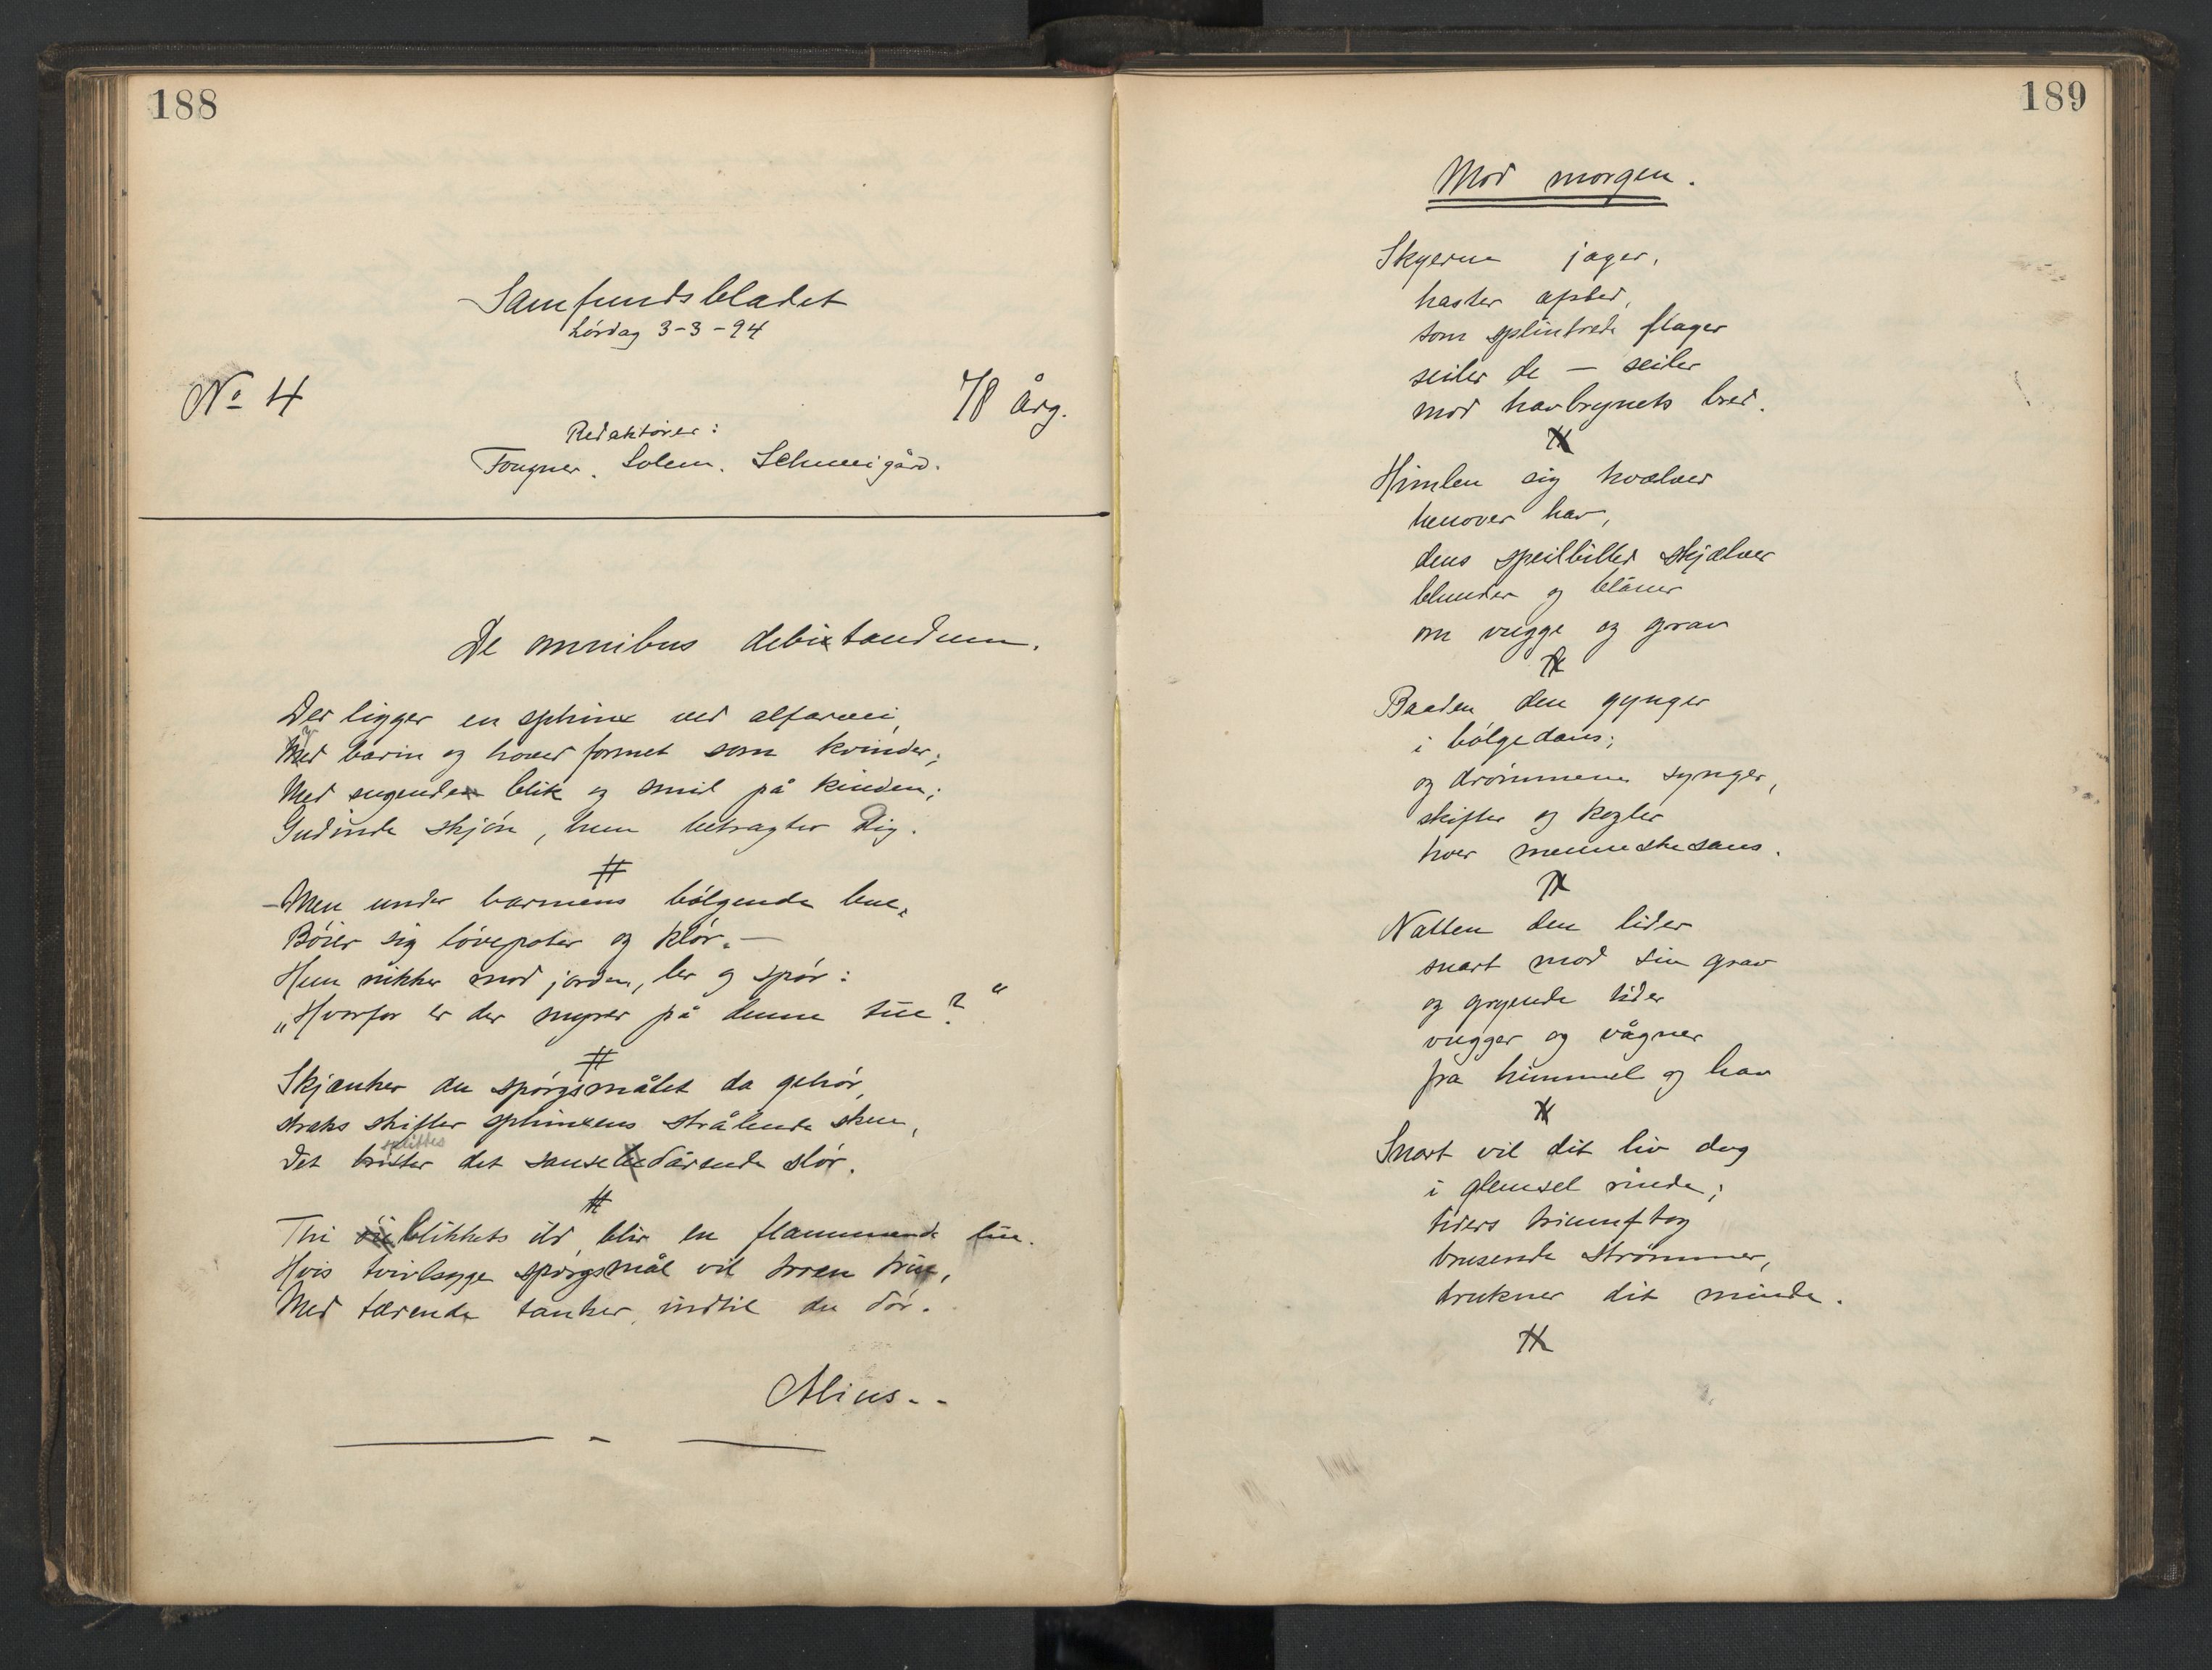 188
Samfundsbladet
Lördag 3-3-94
No 4
78 Årg.
Redaktörer:
Fougner. Solem. Schweigård.
De omnibus debitandum.
Der ligger en sphinx ved alfarvei,
Med barm og hoved formet som kvinder;
Med sugende blik og smil på kinden;
Gudinde skjön, hun betragter Dig.
#
– Men under barmens bölgende bue,
Böier sig lövepoter og klör. –
Hun nikker mod jorden, ler og spör:
„Hvorfor er der myrer på denne tue?“
#
Skjænker du spörgsmålet da gehör,
straks skifter sphinxens strålende skue,
splittes
Det brister det sansedårende slör.
#
Thi blikkets ild, blir en flammende lue.
Hvis tvivlsyge spörgsmål vil troen true,
Med tærende tanker, indtil du dör.
Alius. -
189
Mod morgen.
Skyerne jager,
haster afsted,
som splintrede flager
seiler de – seiler
mod havbrynets bred.
#
Himlen sig hvælver
henover hav,
dens speilbilled skjælver
blunder og blåner
om vugge og grav
#
Baaden den gynger
i bölgedans;
og drömmene synger,
skifter og kogler
hver menneskesans.
#
Natten den lider
snart mod sin grav
og gryende tider
vugger og vågner
fra himmel og hav
#
Snart vil dit liv dog
i glemsel rinde;
tiders triumftog
brusende strömmer,
drukner dit minde.
#